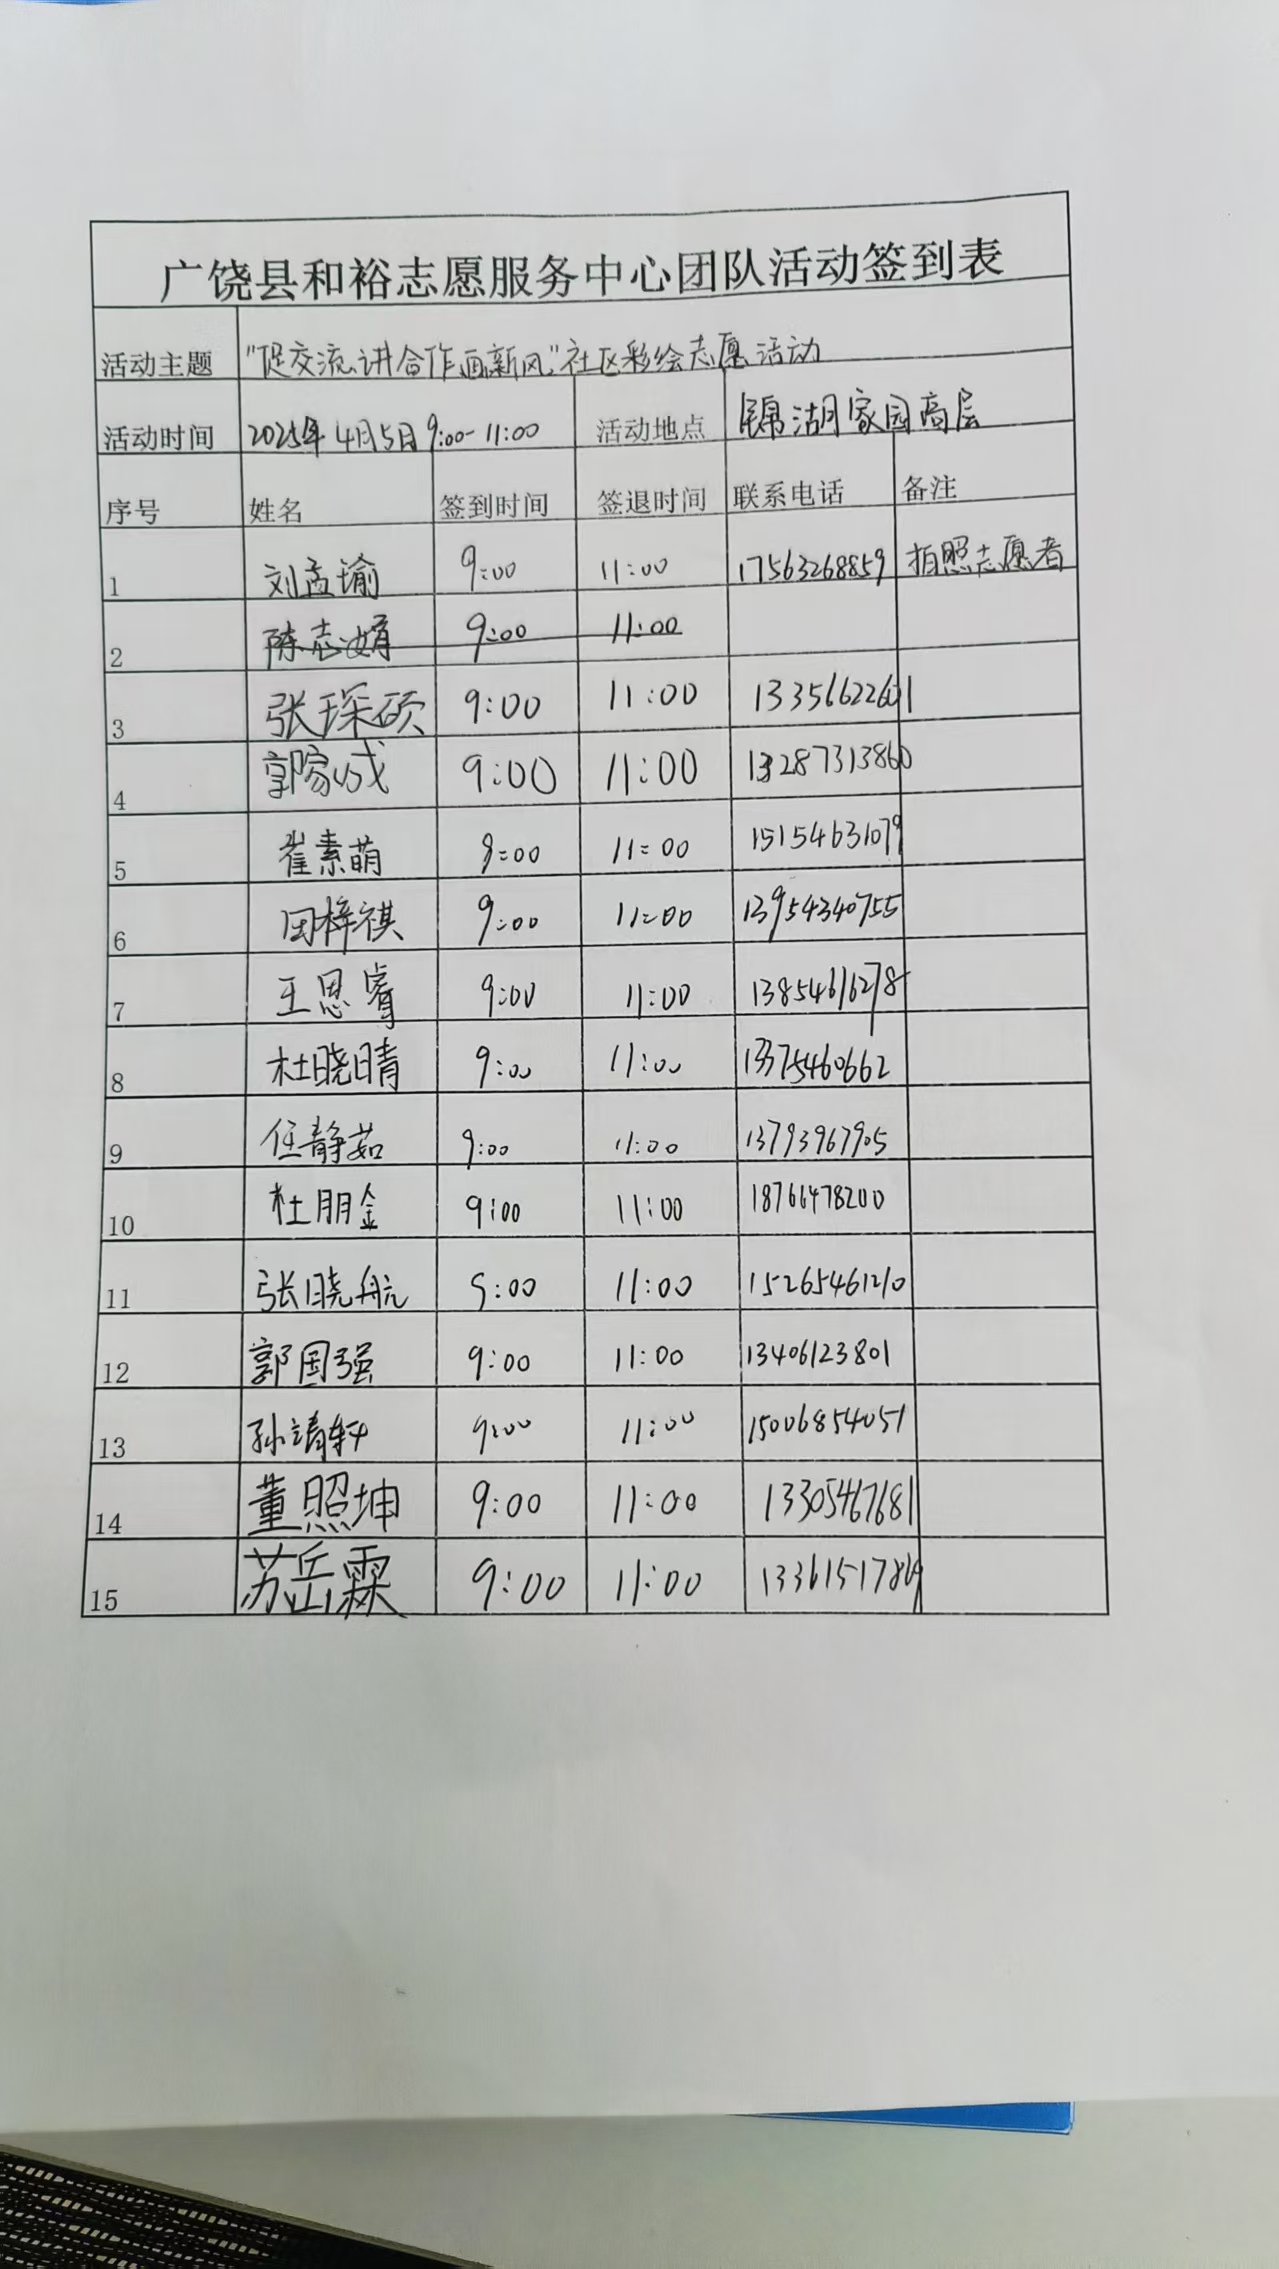 广饶县和裕志愿服务中心团队活动签到表
活动主题 "促交流讲合作画新风"社区彩绘志愿活动
活动时间 2025年4月5日9:00-11:00 活动地点 锦湖家园高层
序号 姓名 签到时间 签退时间 联系电话 备注
1 刘孟瑜 9:00 11:00 17563268859 拍照志愿者
2 陈志娟 9:00 11:00
3 张琛硕 9:00 11:00 13356622601
4 郭家成 9:00 11:00 13287313860
5 崔素萌 9:00 11:00 15154631079
6 田梓祺 9:00 11:00 13954340755
7 王恩睿 9:00 11:00 13854616278
8 杜晓晴 9:00 11:00 13375460662
9 任静茹 9:00 11:00 13793967905
10 杜朋金 9:00 11:00 18766478200
11 张晓航 9:00 11:00 15265461210
12 郭国强 9:00 11:00 13406123801
13 孙靖轩 9:00 11:00 15006854051
14 董照坤 9:00 11:00 13305467681
15 苏岳霖 9:00 11:00